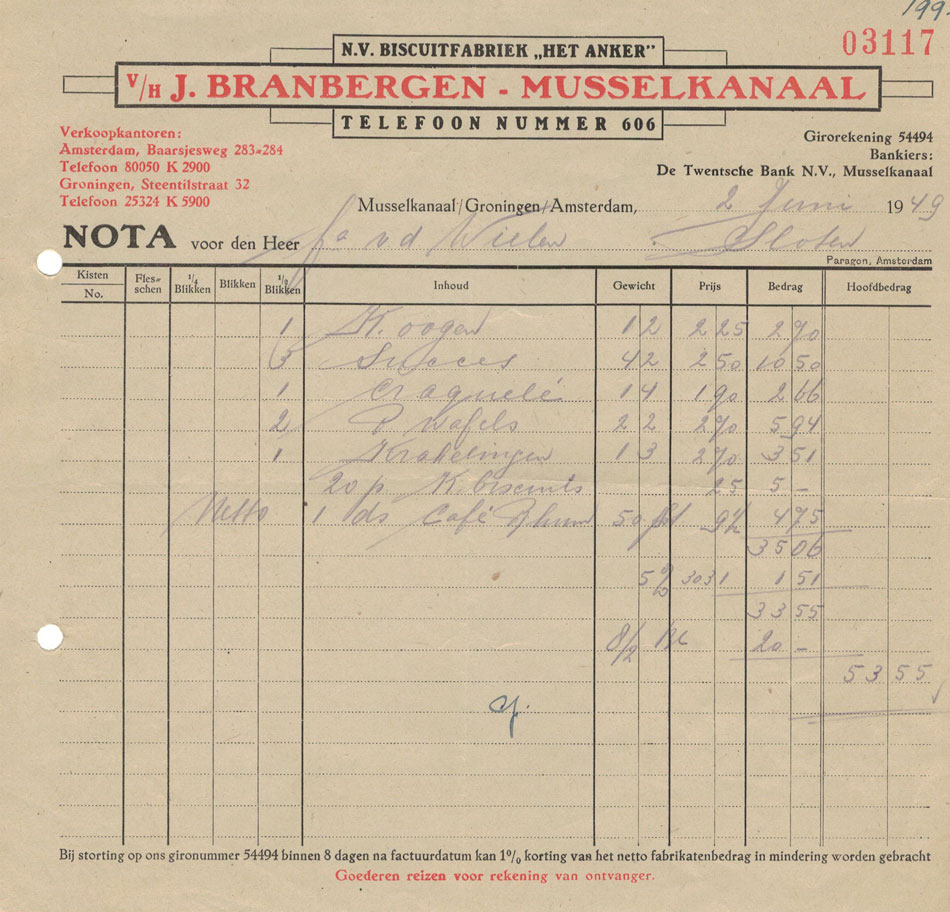 199
03117
N.V. BISCUITFABRIEK „HET ANKER”
V/H J. BRANBERGEN - MUSSELKANAAL
TELEFOON NUMMER 606
Verkoopkantoren:
Amsterdam, Baarsjesweg 283-284
Telefoon 80050 K 2900
Groningen, Steentilstraat 32
Telefoon 25324 K 5900
Girorekening 54494
Bankiers:
De Twentsche Bank N.V., Musselkanaal
Musselkanaal/Groningen/Amsterdam, 2 Juni 1949
NOTA voor den Heer Fa v d Wielen Sloten
Paragon, Amsterdam
Kisten No. Fles-schen 1/4 Blikken Blikken 1/2 Blikken Inhoud Gewicht Prijs Bedrag Hoofdbedrag
1 K. oogen 12 2 25 2 70
3 Succes 42 2 50 10 50
1 Craquelé 14 1 90 2 66
2 P wafels 22 2 70 5 94
1 Krakelingen 13 2 70 3 51
20 p K. biscuits 25 5 -
Netto 1 ds Café 50 9 1/2 4 75
35 06
5% 30 31 1 51
33 55
8/2 20 -
53 55
Bij storting op ons gironummer 54494 binnen 8 dagen na factuurdatum kan 1% korting van het netto fabrikatenbedrag in mindering worden gebracht
Goederen reizen voor rekening van ontvanger.